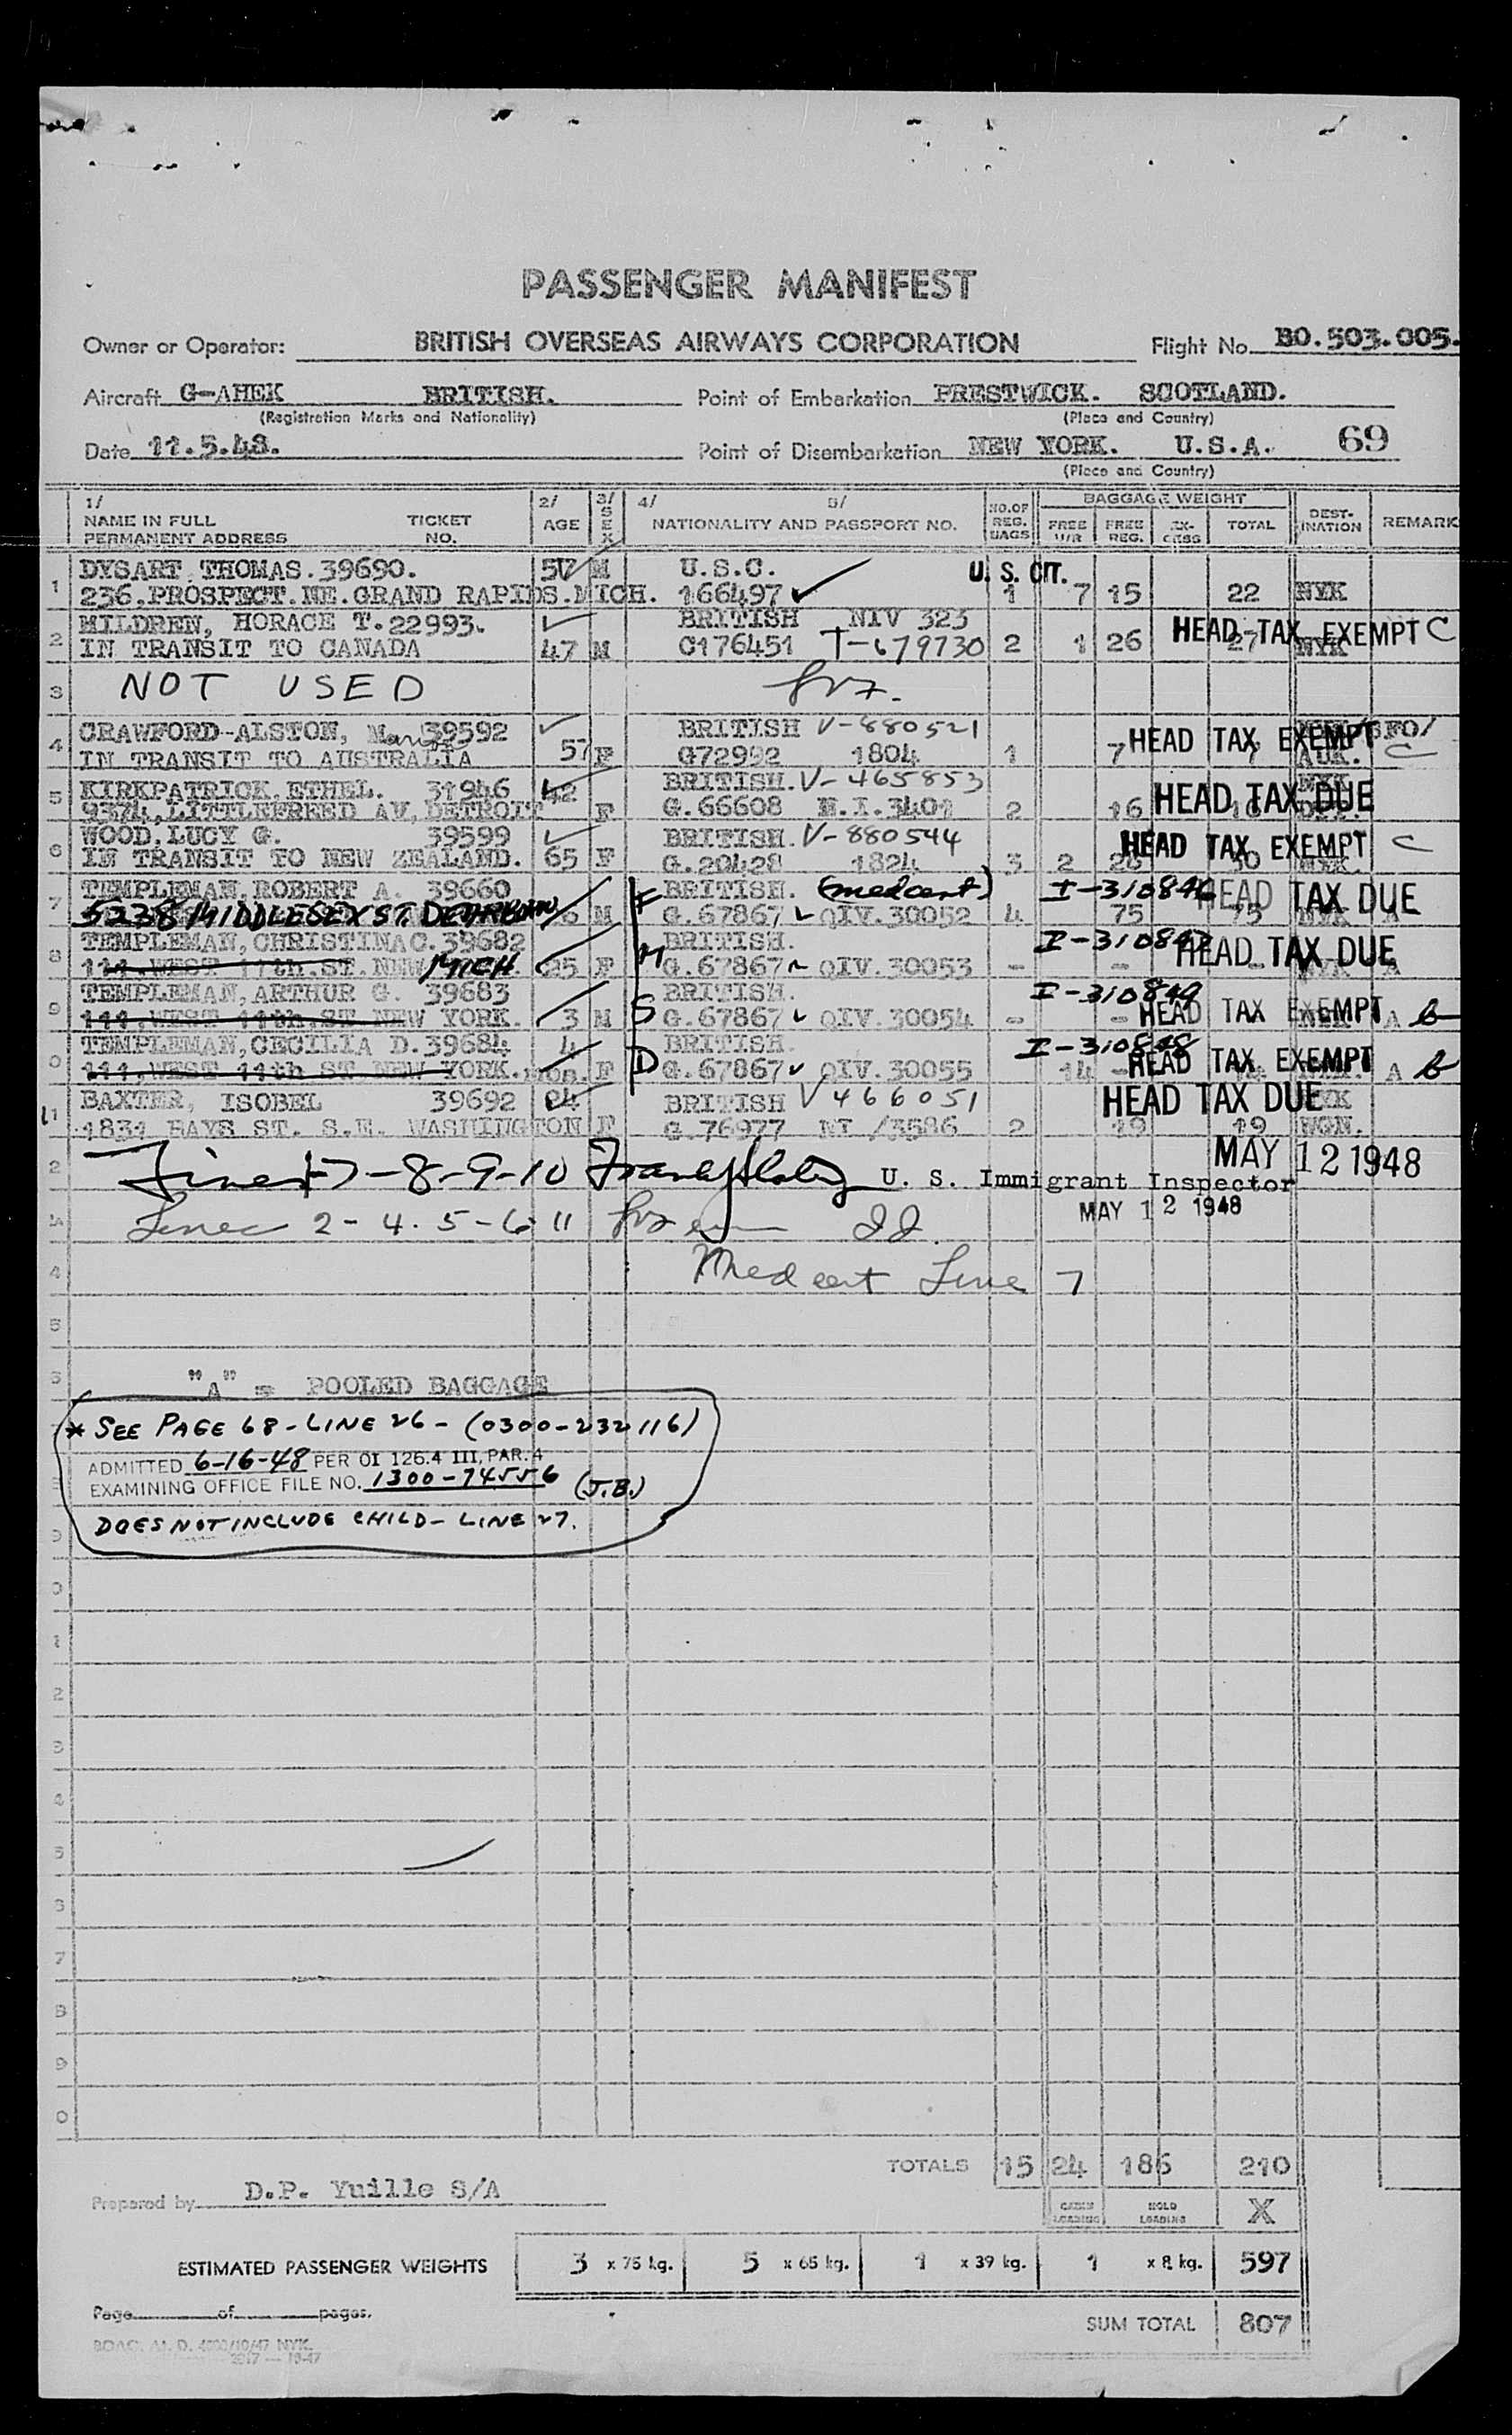 PASSENGER MANIFEST
Owner or Operator: BRITISH OVERSEAS AIRWAYS CORPORATION Flight No. BO.503.005.
Aircraft G-AHEK BRITISH. Point of Embarkation PRESTWICK. SCOTLAND.
(Registration Marks and Nationality) (Place and Country)
Date 11.5.48. Point of Disembarkation NEW YORK. U.S.A. 69
(Place and Country)
1/ 2/ 3/ 4/ 5/ BAGGAGE WEIGHT
NAME IN FULL TICKET AGE SEX NATIONALITY AND PASSPORT NO. NO. OF REG. BAGS FREE FREE REG. EX-CESS TOTAL DEST-INATION REMARK
PERMANENT ADDRESS NO.
1 DYSART THOMAS.39690. M U.S.C. U. S. CIT.
236.PROSPECT.NE.GRAND RAPIDS.MICH. 166497 1 7 15 22 NYK
2 MILDREN, HORACE T.22993. BRITISH NIV 323 HEAD TAX EXEMPT C
IN TRANSIT TO CANADA 47 M C176451 T-679730 2 1 26 27 NYK
3 NOT USED
4 CRAWFORD-ALSTON, 39592 BRITISH V-880521 HEAD TAX EXEMPT C
IN TRANSIT TO AUSTRALIA 57 F G72992 1804 1 7
5 KIRKPATRICK.ETHEL. 31946 42 BRITISH. V-465853 HEAD TAX DUE
9374, AV, DETROIT F G.66608 N.I.3401 2 16
6 WOOD.LUCY G. 39599 BRITISH. V-880544 HEAD TAX EXEMPT C
IN TRANSIT TO NEW ZEALAND. 65 F G.20428 1824 3 2
7 TEMPLEMAN,ROBERT A. 39660 F BRITISH. (medcert) I-310846 HEAD TAX DUE
5238 MIDDLESEX ST. DEARBORN M G.67867 QIV.30052 4 75 75
8 TEMPLEMAN,CHRISTINA C.39682 M BRITISH. I-310847 HEAD TAX DUE
111.WEST 11th.ST.NEW MICH. 25 F G.67867 QIV.30053 - - - A
9 TEMPLEMAN,ARTHUR G. 39683 S BRITISH. I-310849 HEAD TAX EXEMPT
111.WEST 11th.ST NEW YORK. 3 M G.67867 QIV.30054 - - A b
0 TEMPLEMAN,CECILIA D.39684 4 D BRITISH. I-310848 HEAD TAX EXEMPT
111.WEST 11th ST NEW YORK. mos. F G.67867 QIV.30055 14 - A b
11 BAXTER, ISOBEL 39692 24 BRITISH V 466051 HEAD TAX DUE
1831 BAYS ST. S.E. WASHINGTON F G.76977 NI /3586 2 19 19 WGN.
2 7-8-9-10 U. S. Immigrant Inspector MAY 12 1948
MAY 12 1948
Lines 2-4.5-6 11
4 Med cert Line 7
5
6 "A" = POOLED BAGGAGE
* SEE PAGE 68-LINE 26-(0300-232116)
ADMITTED 6-16-48 PER OI 126.4 III, PAR. 4
EXAMINING OFFICE FILE NO. 1300-74556 (J.B.)
DOES NOT INCLUDE CHILD-LINE 27.
0
1
2
3
4
5
6
7
8
9
0
TOTALS 15 24 186 210
Prepared by D.P. Yuille S/A CABIN LOADING HOLD LOADING X
ESTIMATED PASSENGER WEIGHTS 3 x 75 kg. 5 x 65 kg. 1 x 39 kg. 1 x 8 kg. 597
Page of pages. SUM TOTAL 807